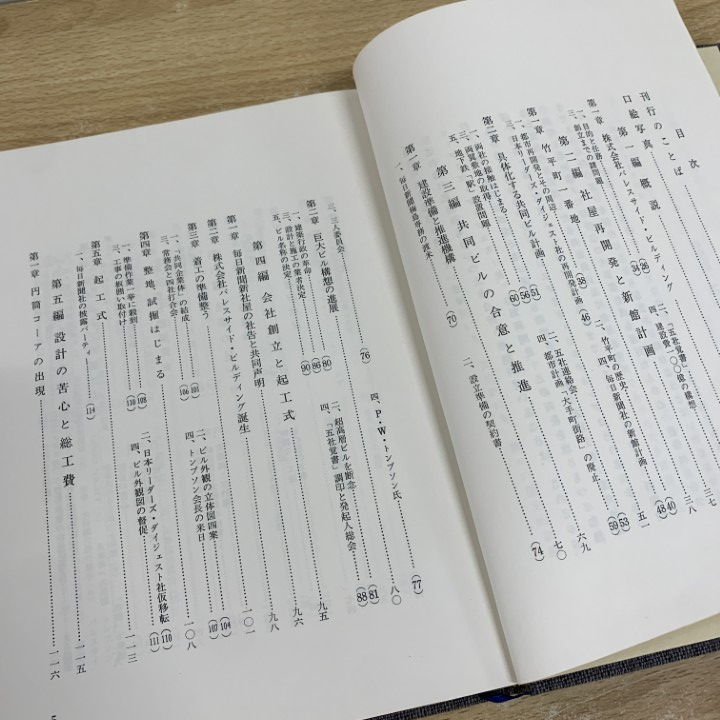 目次
刊行のことば
口絵写真
第一編 概説
第一章 株式会社パレスサイド・ビルディング……三七
一、目的と任務……(26)
二、創立までの諸問題……(34)
三、「五社覚書」……(40)
四、建設費一〇〇億の構想……(48)
第二編 社屋再開発と新館計画
第一章 竹平町一番地……五一
一、都市再開発とその周辺……(38)
二、竹平町の歴史……(53)
三、日本リーダーズ・ダイジェスト社の再開発計画……(46)
四、毎日新聞社の新館計画……(59)
第二章 具体化する共同ビル計画……六九
一、両社の接触はじまる……(51)
二、両翼敷地の取得……(56)
五、地下鉄「駅」設置問題……(60)
三、五社連絡会
四、都市計画「大手町街路」の廃止……七〇
第三編 共同ビルの合意と推進
第一章 建設準備と推進機構
一、毎日新聞梅島専務の渡米……(70)
二、設立準備の契約書……(74)
三、三人委員会……(76)
四、P・W・トンプソン氏……(77)
第二章 巨大ビル構想の進展……八〇
一、建築行政の革命……(80)
二、超高層ビルを断念……(81)
三、設計と施工の業者決定……(86)
四、「五社覚書」調印と発起人総会……(88)
五、ビル名称の決定……(90)
第四編 会社創立と起工式
第一章 毎日新聞新社屋の社告と共同声明……九五
第二章 株式会社パレスサイド・ビルディング誕生……九六
第三章 着工の準備整う……九八
一、「共同企業体」の結成……(101)
二、ビル外観の立体図四案……(104)
三、常務会と四社打合会……(106)
四、トンプソン会長の来日……(107)
第四章 整地、試掘はじまる……一〇八
一、準備作業一挙に殺到……(108)
二、日本リーダーズ・ダイジェスト社仮移転……(110)
三、工事の板囲い取付け……(110)
四、ビル外観図の督促……(111)
第五章 起工式……一一三
一、毎日新聞社の披露パーティー……(114)
第五編 設計の苦心と総工費……一一五
第一章 円筒コーアの出現……一一六